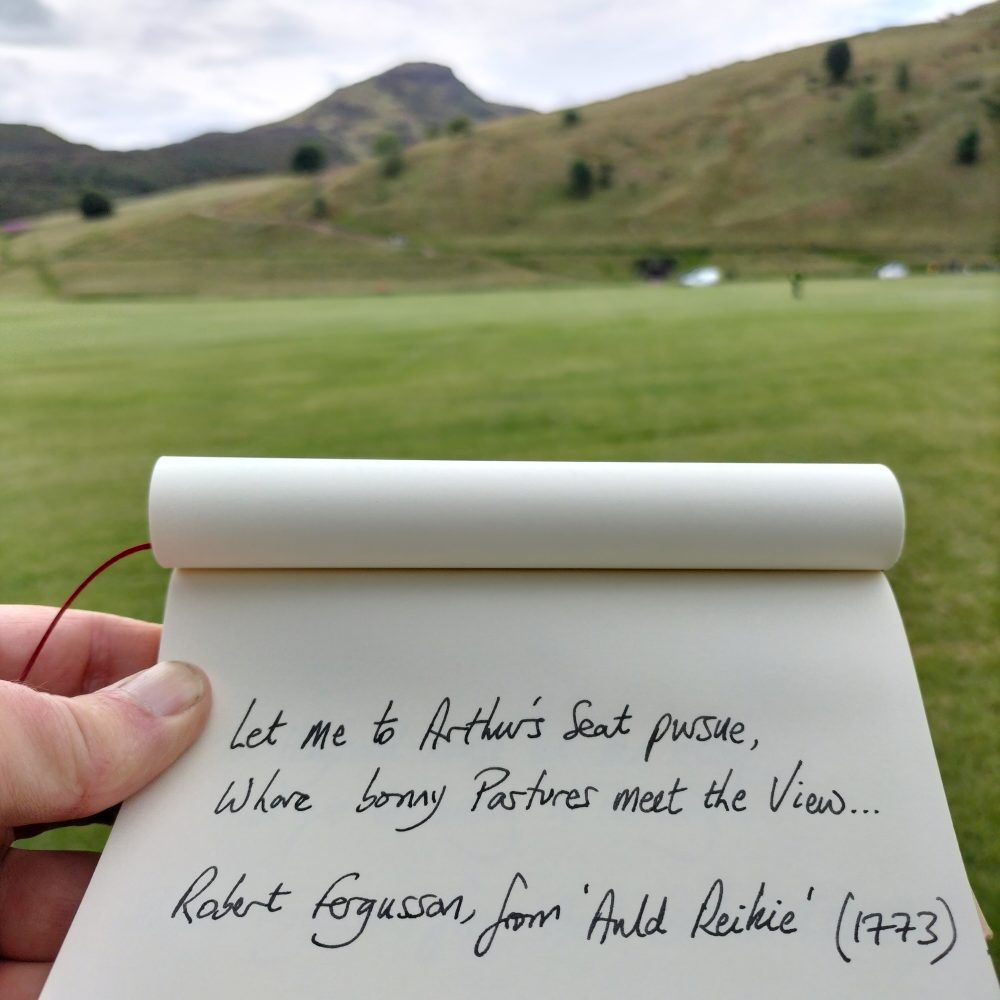 Let me to Arthur's Seat pursue,
Whare bonny Pastures meet the View...
Robert Fergusson, from 'Auld Reikie' (1773)